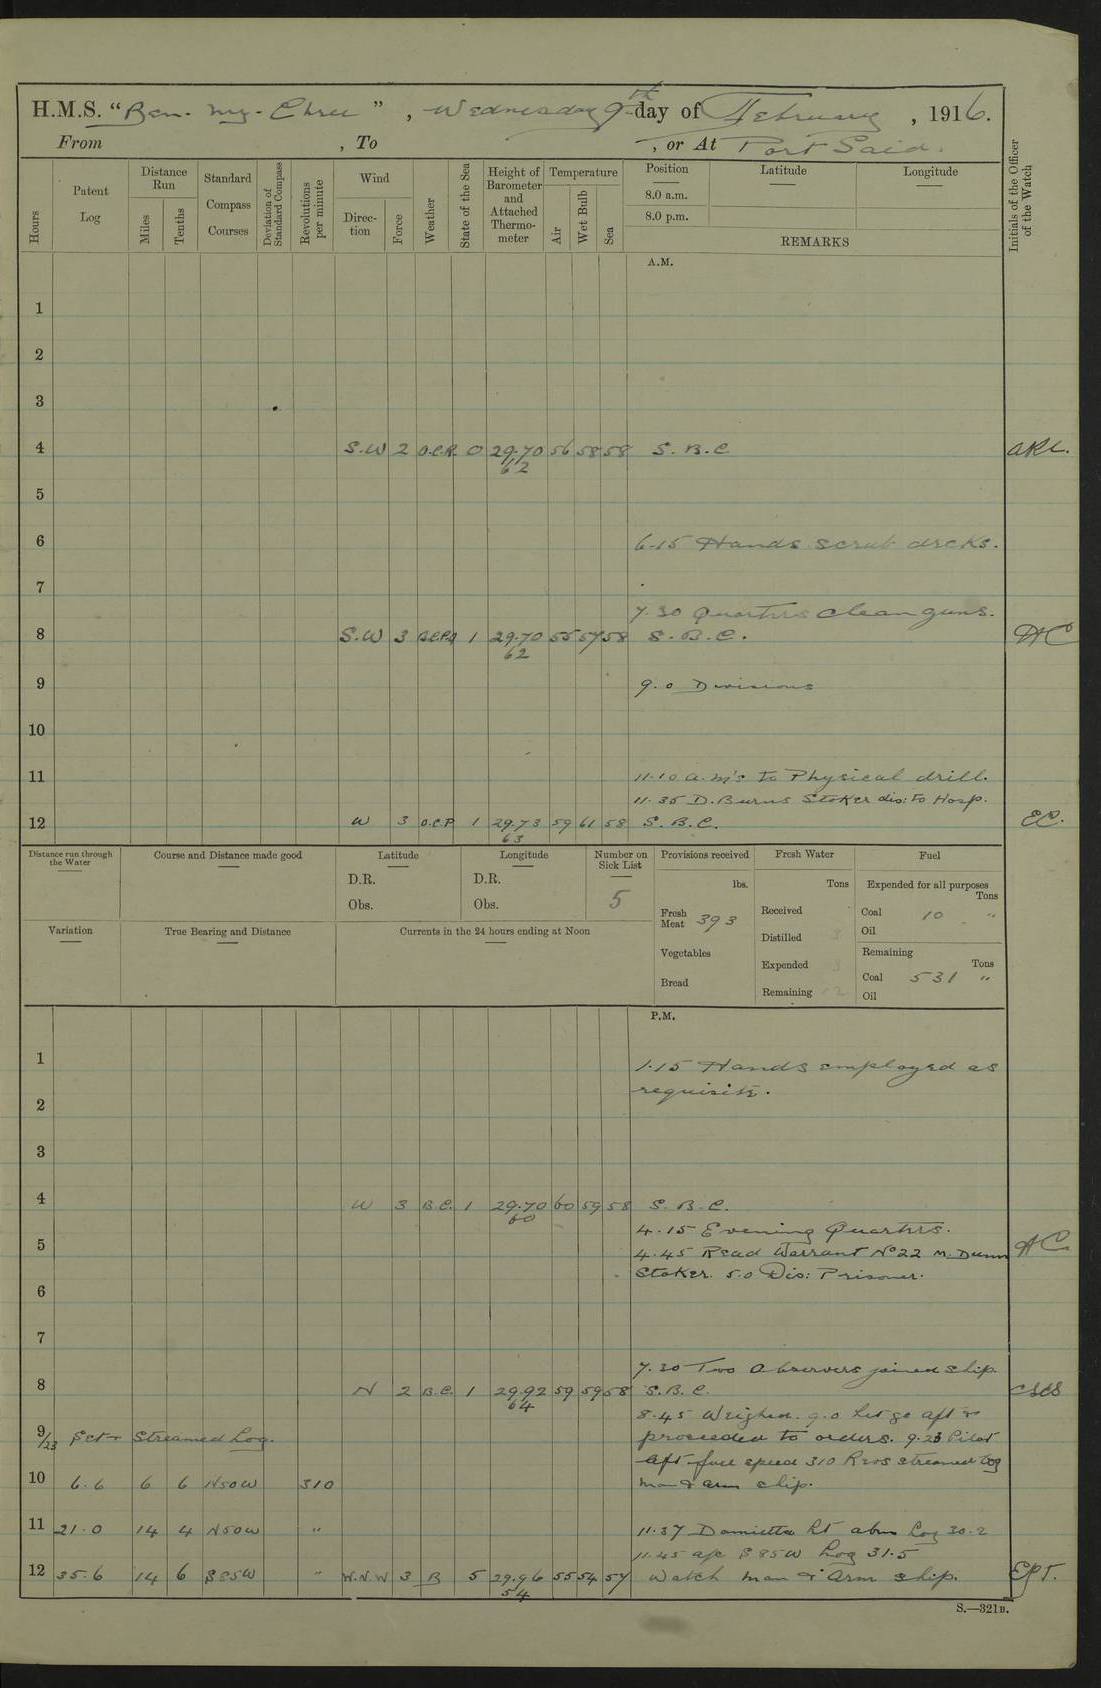 H.M.S. “Ben-my-Chree”, Wednesday 9th day of February, 1916.
From , To , or At Port Said.
Hours
Patent Log
Distance Run
Miles
Tenths
Standard Compass Courses
Deviation of Standard Compass
Revolutions per minute
Wind
Direction
Force
Weather
State of the Sea
Height of Barometer and Attached Thermometer
Temperature
Air
Wet Bulb
Sea
Position
8.0 a.m.
8.0 p.m.
Latitude
Longitude
REMARKS
Initials of the Officer of the Watch
A.M.
1
2
3
4 S.W 2 O.C.R. 0 29.70 56 58 58 S.B.C ARC.
62
5
6 6.15 Hands scrub decks.
7
7.30 Quarters clean guns.
8 S.W 3 1 29.70 55 57 58 S.B.C. AC
62
9 9.0 Divisions
10
11 11.10 a.m's to Physical drill.
11.35 D. Burns Stoker dis: to Hosp.
12 W 3 O.C.P 1 29.73 59 61 58 S.B.C. EC.
63
Distance run through the Water
Course and Distance made good
Latitude
D.R.
Obs.
Longitude
D.R.
Obs.
Number on Sick List
5
Provisions received
lbs.
Fresh Meat 393
Vegetables
Bread
Fresh Water
Tons
Received
Distilled 3
Expended 3
Remaining 12
Fuel
Expended for all purposes
Tons
Coal 10 "
Oil
Remaining
Tons
Coal 531 "
Oil
Variation
True Bearing and Distance
Currents in the 24 hours ending at Noon
P.M.
1 1.15 Hands employed as
requisite.
2
3
4 W 3 B.C. 1 29.70 60 59 58 S.B.C.
60
4.15 Evening Quarters.
5 4.45 Read Warrant No 22 M. Dunn AC
Stoker. 5.0 Dis: Prisoner.
6
7
7.30 Two Observers joined ship
8 N 2 B.C. 1 29.92 59 59 58 S.B.C.
64
8.45 Weighed. 9.0 Let go aft &
9/23 Set & Streamed Log. proceeded to orders. 9.23 Pilot
aft full speed 310 Revs streamed log
10 6.6 6 6 N50W 310 man & arm ship.
11 21.0 14 4 N50W " 11.37 Damietta Lt abm Log 30.2
11.45 a/c S85W Log 31.5
12 35.6 14 6 S85W " W.N.W 3 B 5 29.96 55 54 57 Watch man & arm ship. EPT.
54
S.—321B.